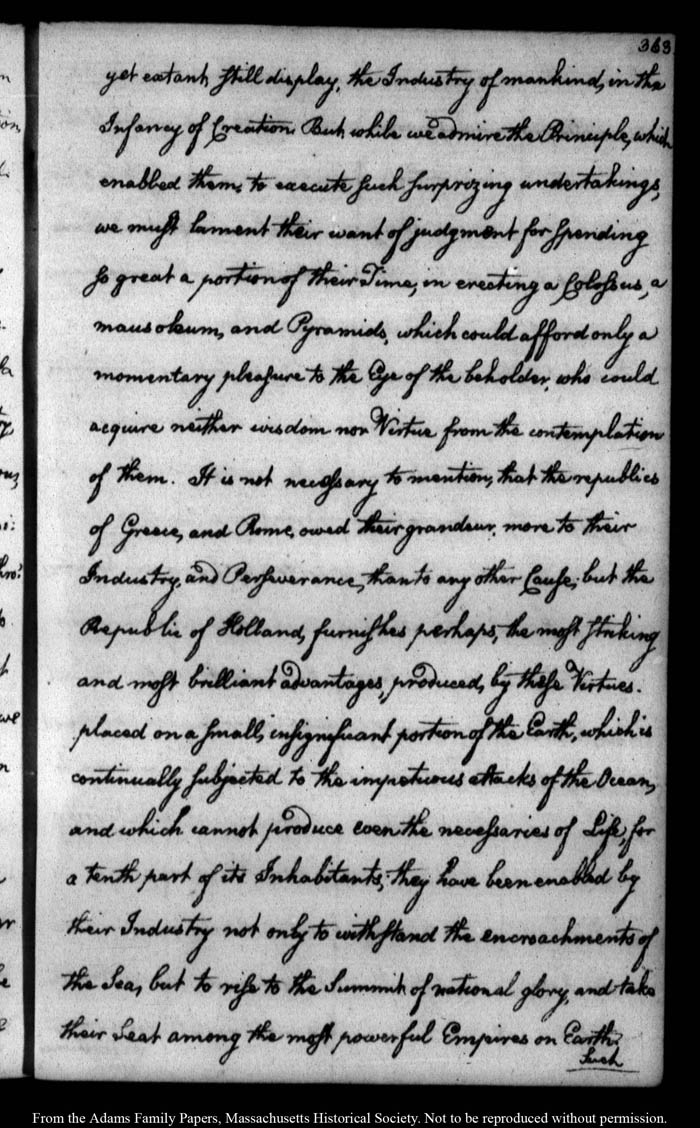 363
yet extant, still display, the Industry of mankind, in the
Infancy of Creation. But while we admire the Principle, which
enabled them, to execute such surprizing undertakings,
we must lament their want of judgment for spending
so great a portion of their Time, in erecting a Colossus, a
mausoleum, and Pyramids, which could afford only a
momentary pleasure to the Eye of the beholder, who could
acquire neither wisdom nor Virtue from the contemplation
of them. It is not necessary to mention, that the republics
of Greece, and Rome, owed their grandeur, more to their
Industry, and Perseverance, than to any other Cause; but the
Republic of Holland, furnishes perhaps, the most striking
and most brilliant advantages, produced, by these Virtues.
placed on a small, insignificant portion of the Earth, which is
continually subjected to the impetuous attacks of the Ocean,
and which cannot produce even the necessaries of Life, for
a tenth part of its Inhabitants, they have been enabled by
their Industry not only to withstand the encroachments of
the Sea, but to rise to the Summit of national glory, and take
their Seat among the most powerful Empires on Earth.
Such
From the Adams Family Papers, Massachusetts Historical Society. Not to be reproduced without permission.